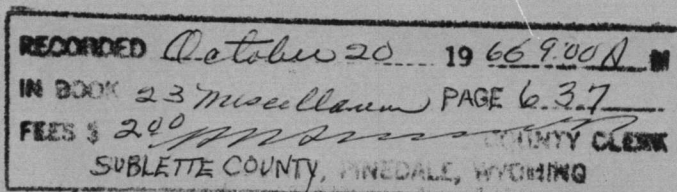 RECORDED October 20 19 66 9:00 A M
IN BOOK 23 Miscellaneous PAGE 637
FEES $ 2.00 COUNTY CLERK
SUBLETTE COUNTY, PINEDALE, WYOMING